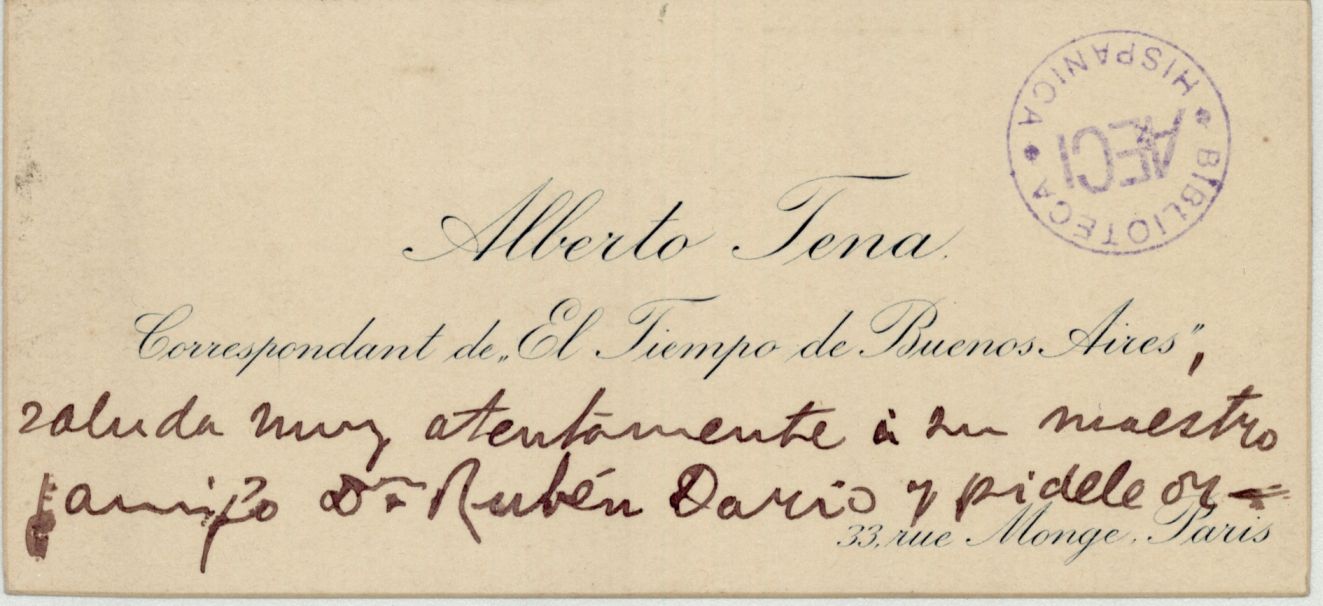 BIBLIOTECA * HISPANICA *
AECI
Alberto Tena.
Correspondant de „El Tiempo de Buenos Aires”,
saluda muy atentamente á su maestro
y amigo Dn Rubén Dario y pidele
33, rue Monge. Paris